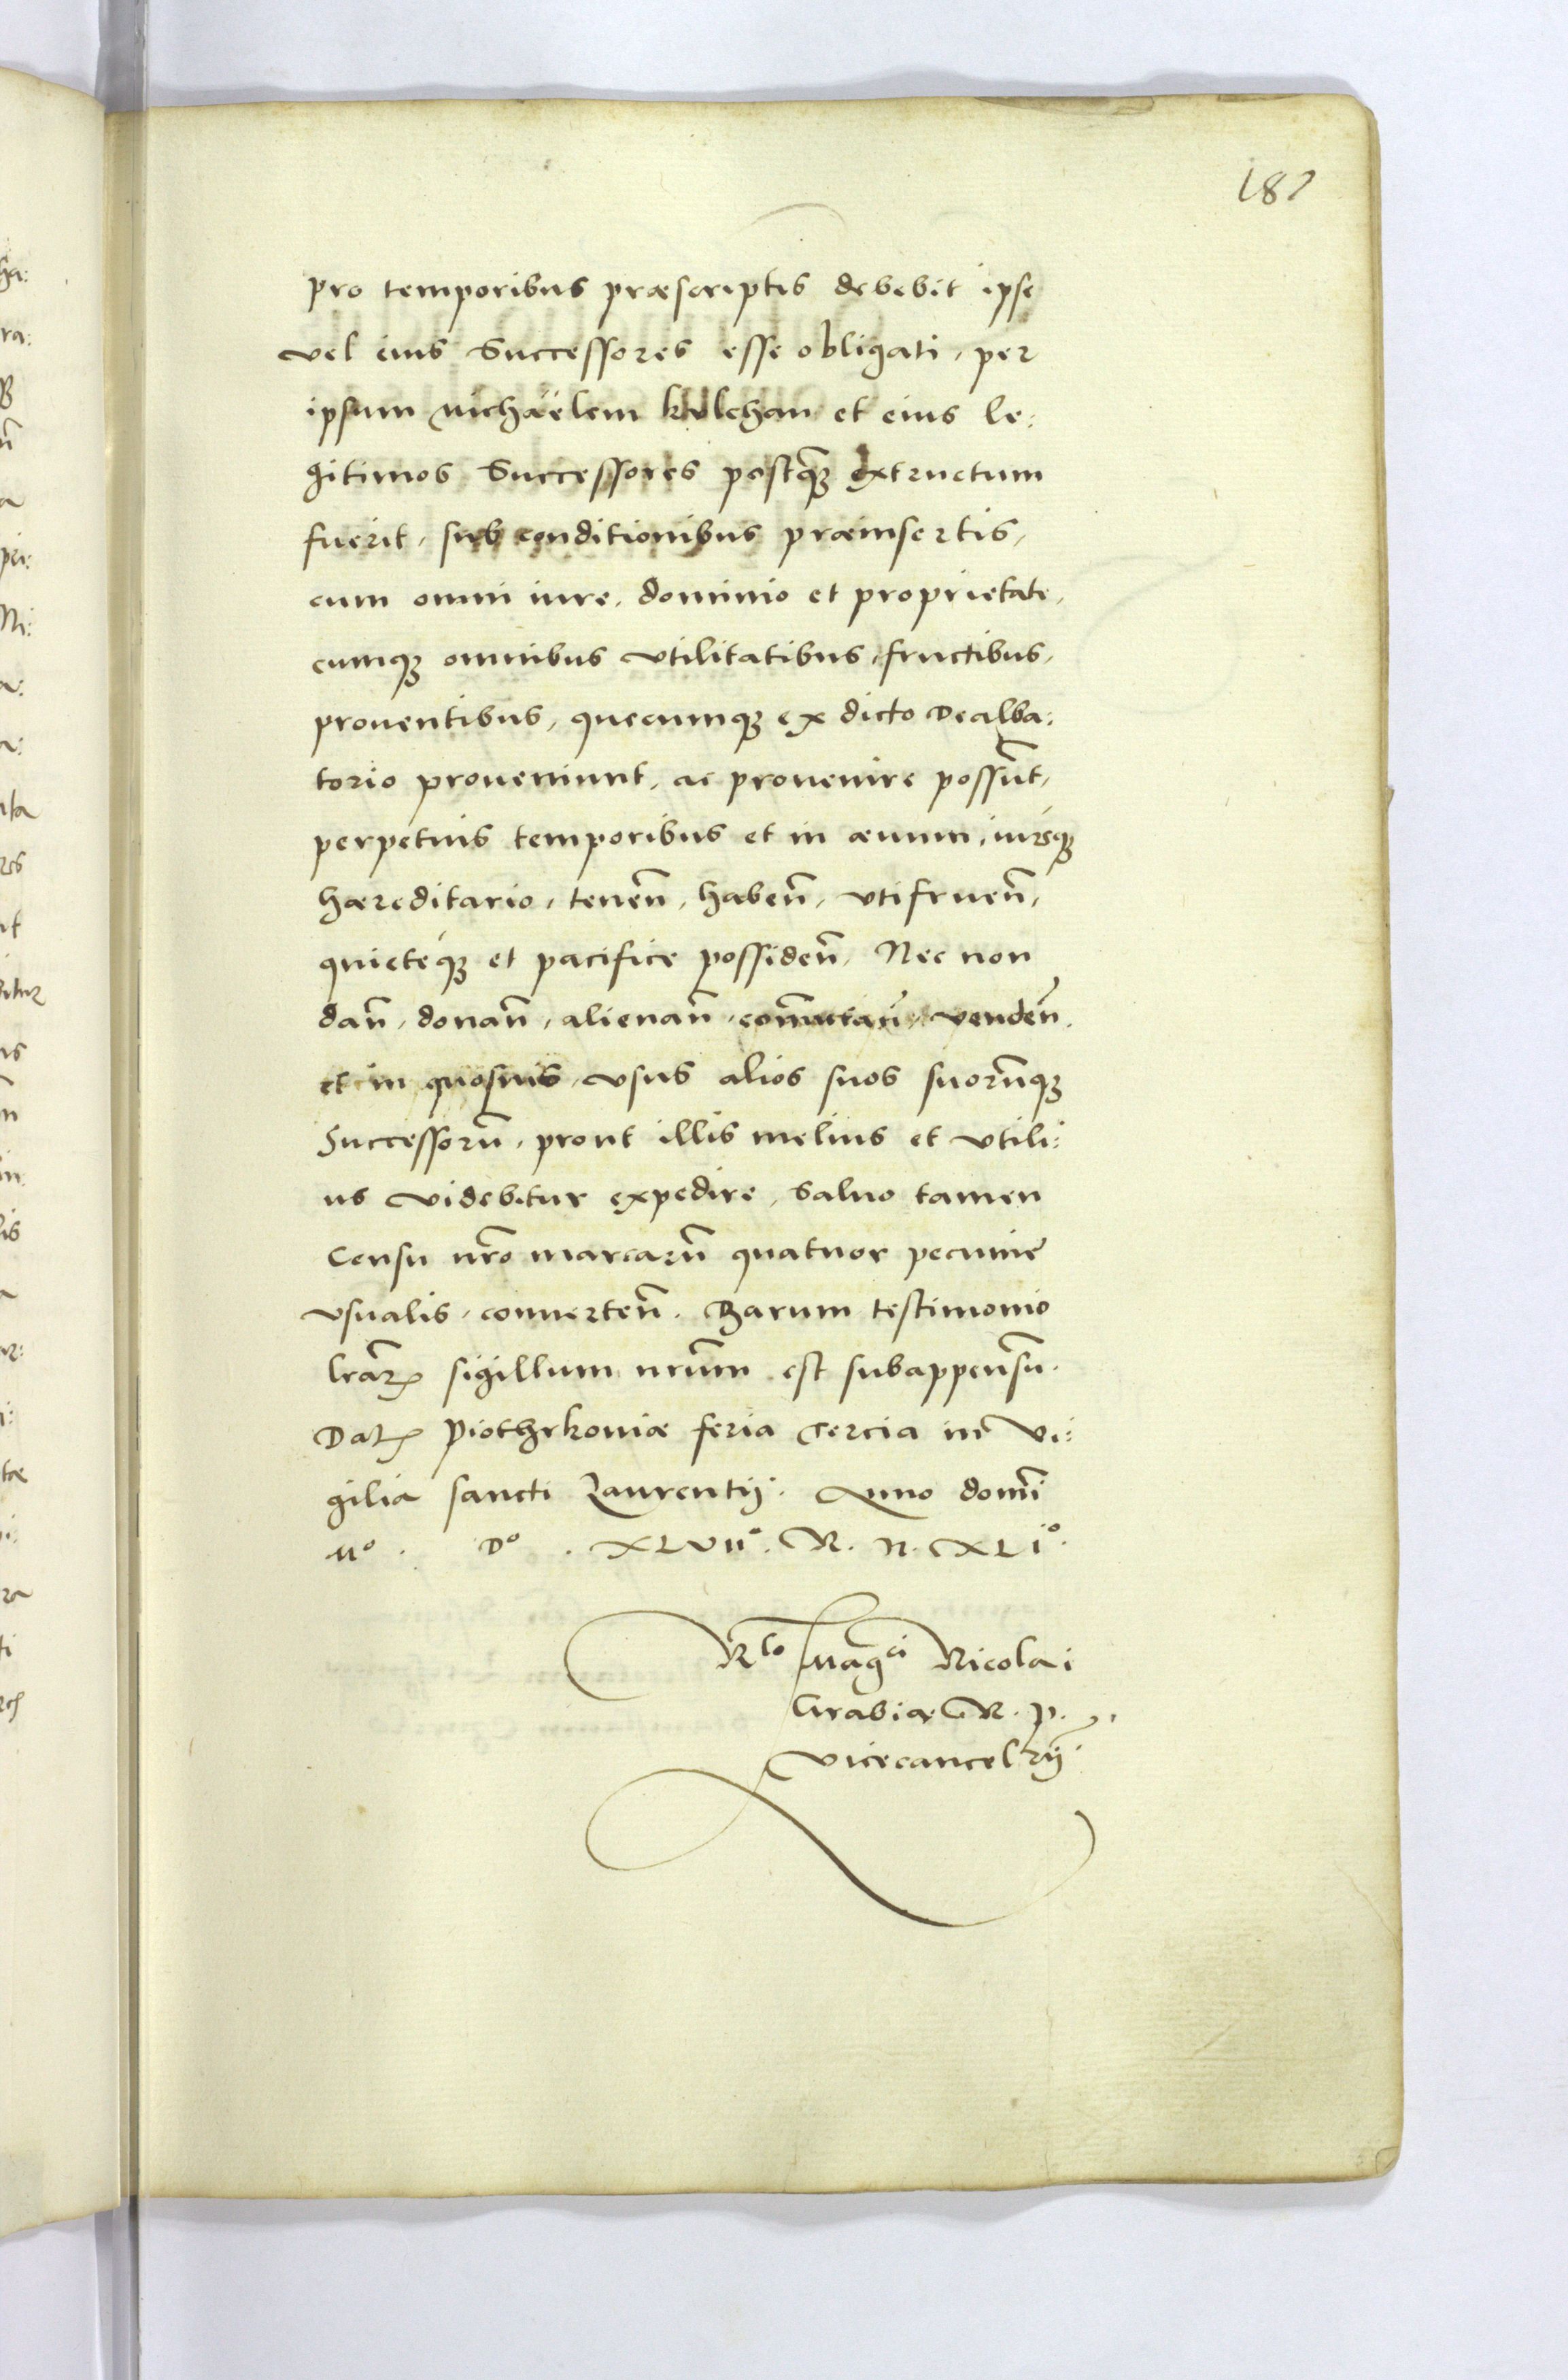 187
pro temporibus præscriptis debebit ipse
vel eius Successores esse obligati, per
ipsum Michaëlem kulchan et eius le:
gitimos Successores postq̃ꝫ extructum
fuerit, sub conditionibus præinsertis,
cum omni iure, dominio et proprietate,
cumqꝫ omnibus vtilitatibus, fructibus,
prouentibus, quecumqꝫ ex dicto Dealba:
torio proueniunt, ac prouenire possũt,
perpetuis temporibus et in æuum, iureqꝫ
hæreditario, tenen̄, haben̄, vtifruen̄,
quieteqꝫ et pacifice possiden̄, Nec non
dan̄, donan̄, alienan̄, com̄utan̄, venden̄,
et in quosuis vsus alios suos suorum̄qꝫ
Successorū, prout illis melius et vtili:
us videbitur expedire, Saluo tamen
Censu nr̄o marcarū quatuor pecuniæ
vsualis, conuerten̄. Harum testimonio
lrãꝝ sigillum nrūm est subappensū.
Datꝝ Piothrkouiæ feria Tercia in Vi:
gilia Sancti Laurentij. Anno domī
Mº. Dº. XLVIIº. R. N. XLIº.
Rlo Magci Nicolai
Grabiæ R. P.
vicecancelrij̄.